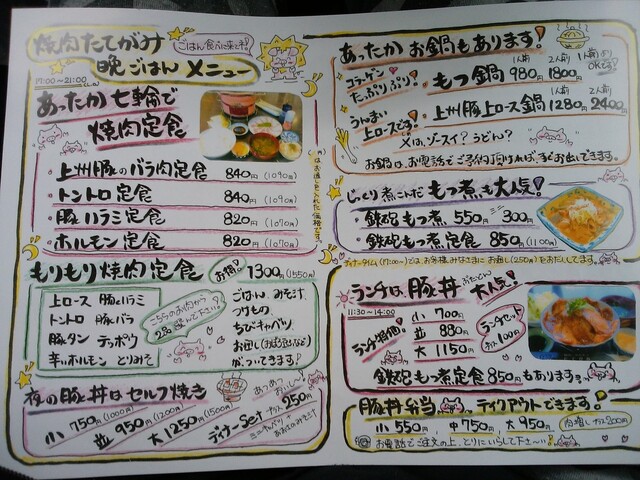 焼肉たてがみ
ごはん食べに来てネ!
17:00〜21:00(L.O)
晩ごはんメニュー
あったか七輪で
焼肉定食
・上州豚のバラ肉定食 840円(1090円)
・トントロ定食 840円(1090円)
・豚ハラミ定食 820円(1070円)
・ホルモン定食 820円(1070円)
もりもり焼肉定食 お得! 1300円(1550円)
上ロース 豚ハラミ
トントロ 豚バラ
豚タン テッポウ
辛いホルモン とりみそ
こちらのお肉から
2品選んで下さい。
ごはん、みそ汁
つけもの
ちびキャベツ
お通し(おばん菜など)
がついてきます!
夜の豚丼はセルフ焼き
小750円(1000円)
並950円(1200円)
大1250円(1500円)
あつあつ
おいしー!
ディナーSet プラス250円
ミニキャベツ+
あおさのみそ汁
あったかお鍋もあります!
コラーゲン
たっぷりぷり!
・もつ鍋 1人前 980円 2人前 1800円
1人前より
OKです!
うんまい
上ロースです!
・上州豚上ロース鍋 1人前 1280円 2人前 2400円
〆は、ゾースイ?うどん?
お鍋は、お電話でご予約頂ければ、すぐお出しできます。
じっくり煮こんだもつ煮も大人気!
・鉄砲もつ煮 550円 ミニ 300円
・鉄砲もつ煮定食 850円(1100円)
ディナータイム(17:00〜)では、お客様みなさまにお通し(250円)をお出ししてます。
ランチは、豚丼 大人気!
11:30〜14:00
ランチ特価!!
小 700円
並 880円
大 1150円
ランチセット
プラス100円
鉄砲もつ煮定食850円もあります。
豚丼弁当 テイクアウトできます!
小550円、中750円、大950円 肉増しプラス200円
お電話でご注文の上、とりにいらして下さ〜い